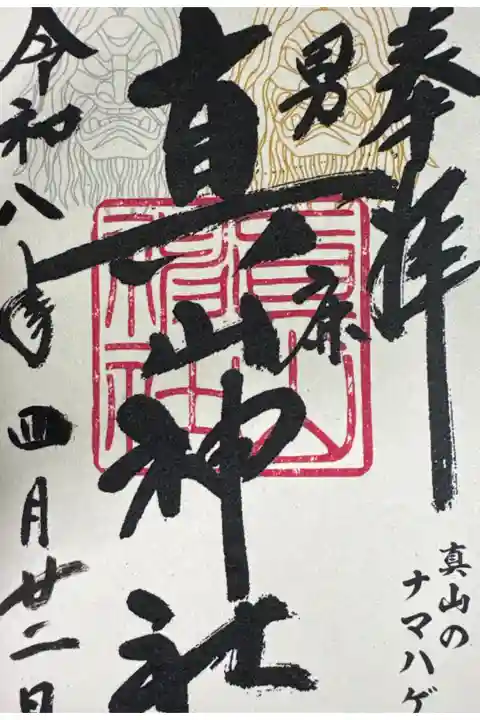 奉拝
男鹿
真山神社
真山の
ナマハゲ
令和八年四月廿二日
真山
神社